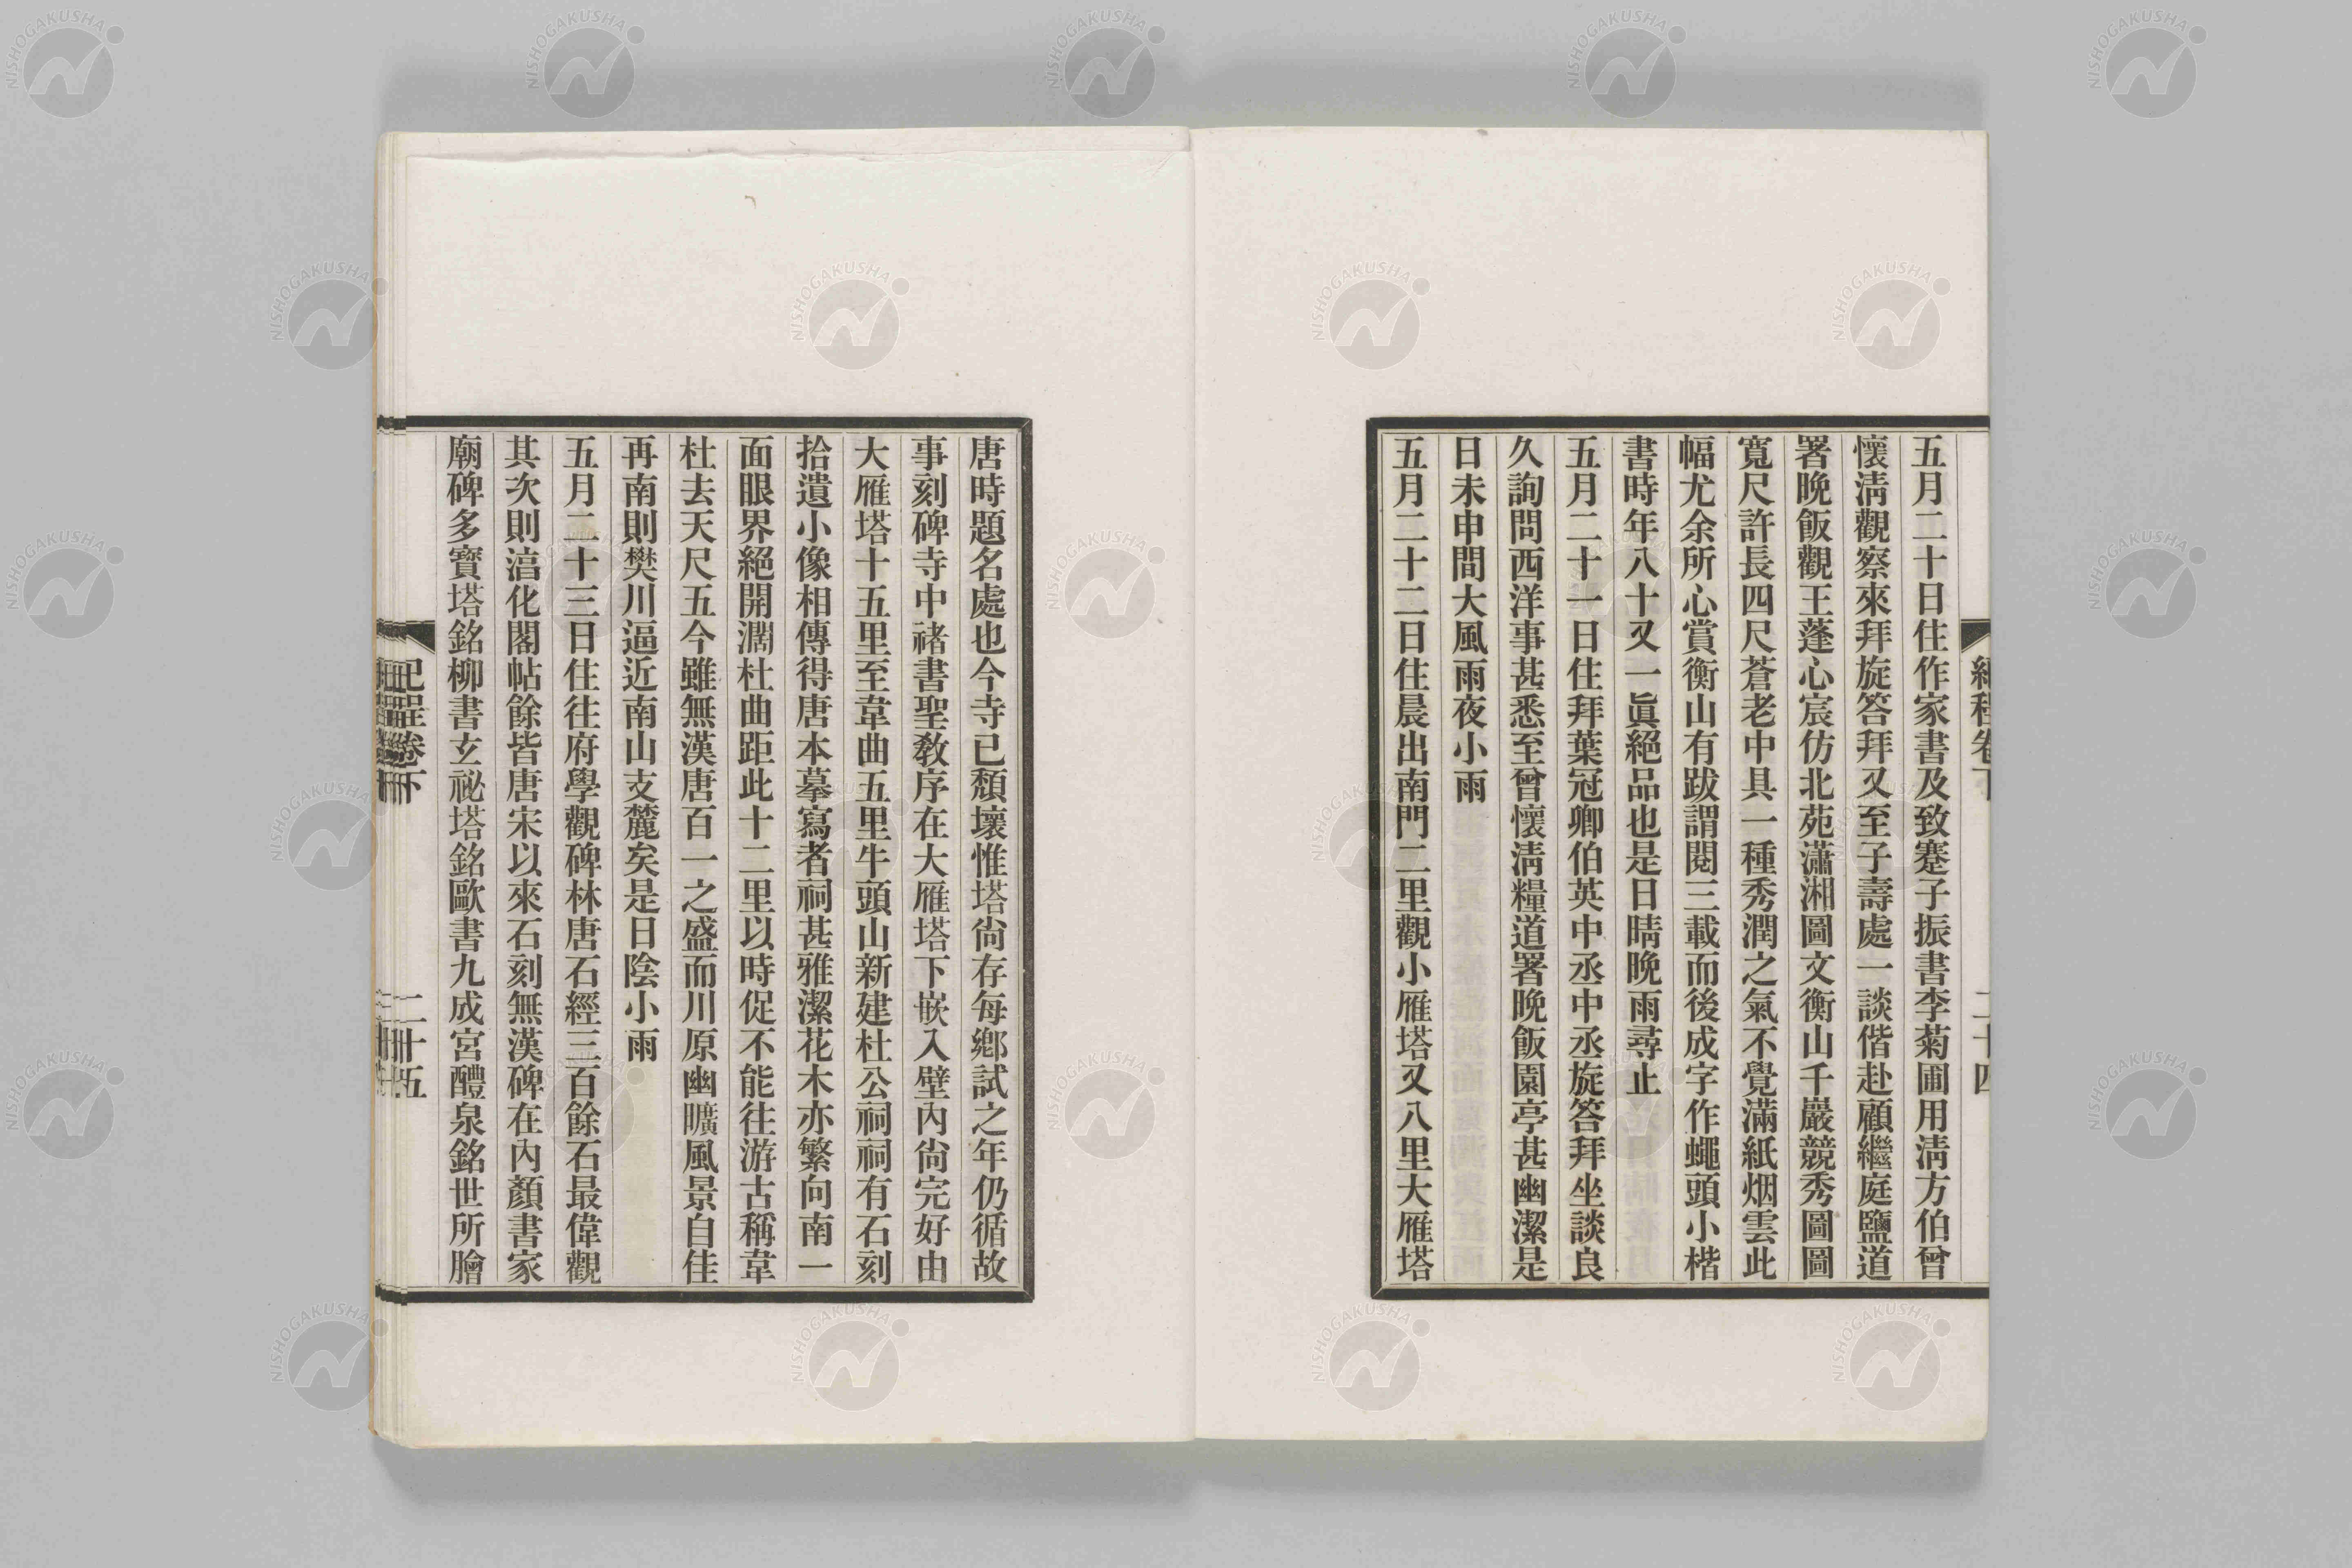 五月二十日住作家書及致蹇子振書李菊圃用淸方伯曾
懷淸觀察來拜旋答拜又至子壽處一談偕赴顧繼庭鹽道
署晚飯觀王蓬心宸仿北苑瀟湘圖文衡山千巖競秀圖圖
寬尺許長四尺蒼老中具一種秀潤之氣不覺滿紙烟雲此
幅尤余所心賞衡山有跋謂閱三載而後成字作蠅頭小楷
書時年八十又一眞絕品也是日晴晚雨尋止
五月二十一日住拜葉冠卿伯英中丞中丞旋答拜坐談良
久詢問西洋事甚悉至曾懷淸糧道署晚飯園亭甚幽潔是
日未申間大風雨夜小雨
五月二十二日住晨出南門二里觀小雁塔又八里大雁塔
唐時題名處也今寺已頹壞惟塔尙存每鄕試之年仍循故
事刻碑寺中褚書聖敎序在大雁塔下嵌入壁內尙完好由
大雁塔十五里至韋曲五里牛頭山新建杜公祠祠有石刻
拾遺小像相傳得唐本摹寫者祠甚雅潔花木亦繁向南一
面眼界絕開濶杜曲距此十二里以時促不能往游古稱韋
杜去天尺五今雖無漢唐百一之盛而川原幽曠風景自佳
再南則樊川逼近南山支麓矣是日陰小雨
五月二十三日住往府學觀碑林唐石經三百餘石最偉觀
其次則湻化閣帖餘皆唐宋以來石刻無漢碑在內顏書家
廟碑多寳塔銘柳書玄祕塔銘歐書九成宮醴泉銘世所膾
卷下
二十五